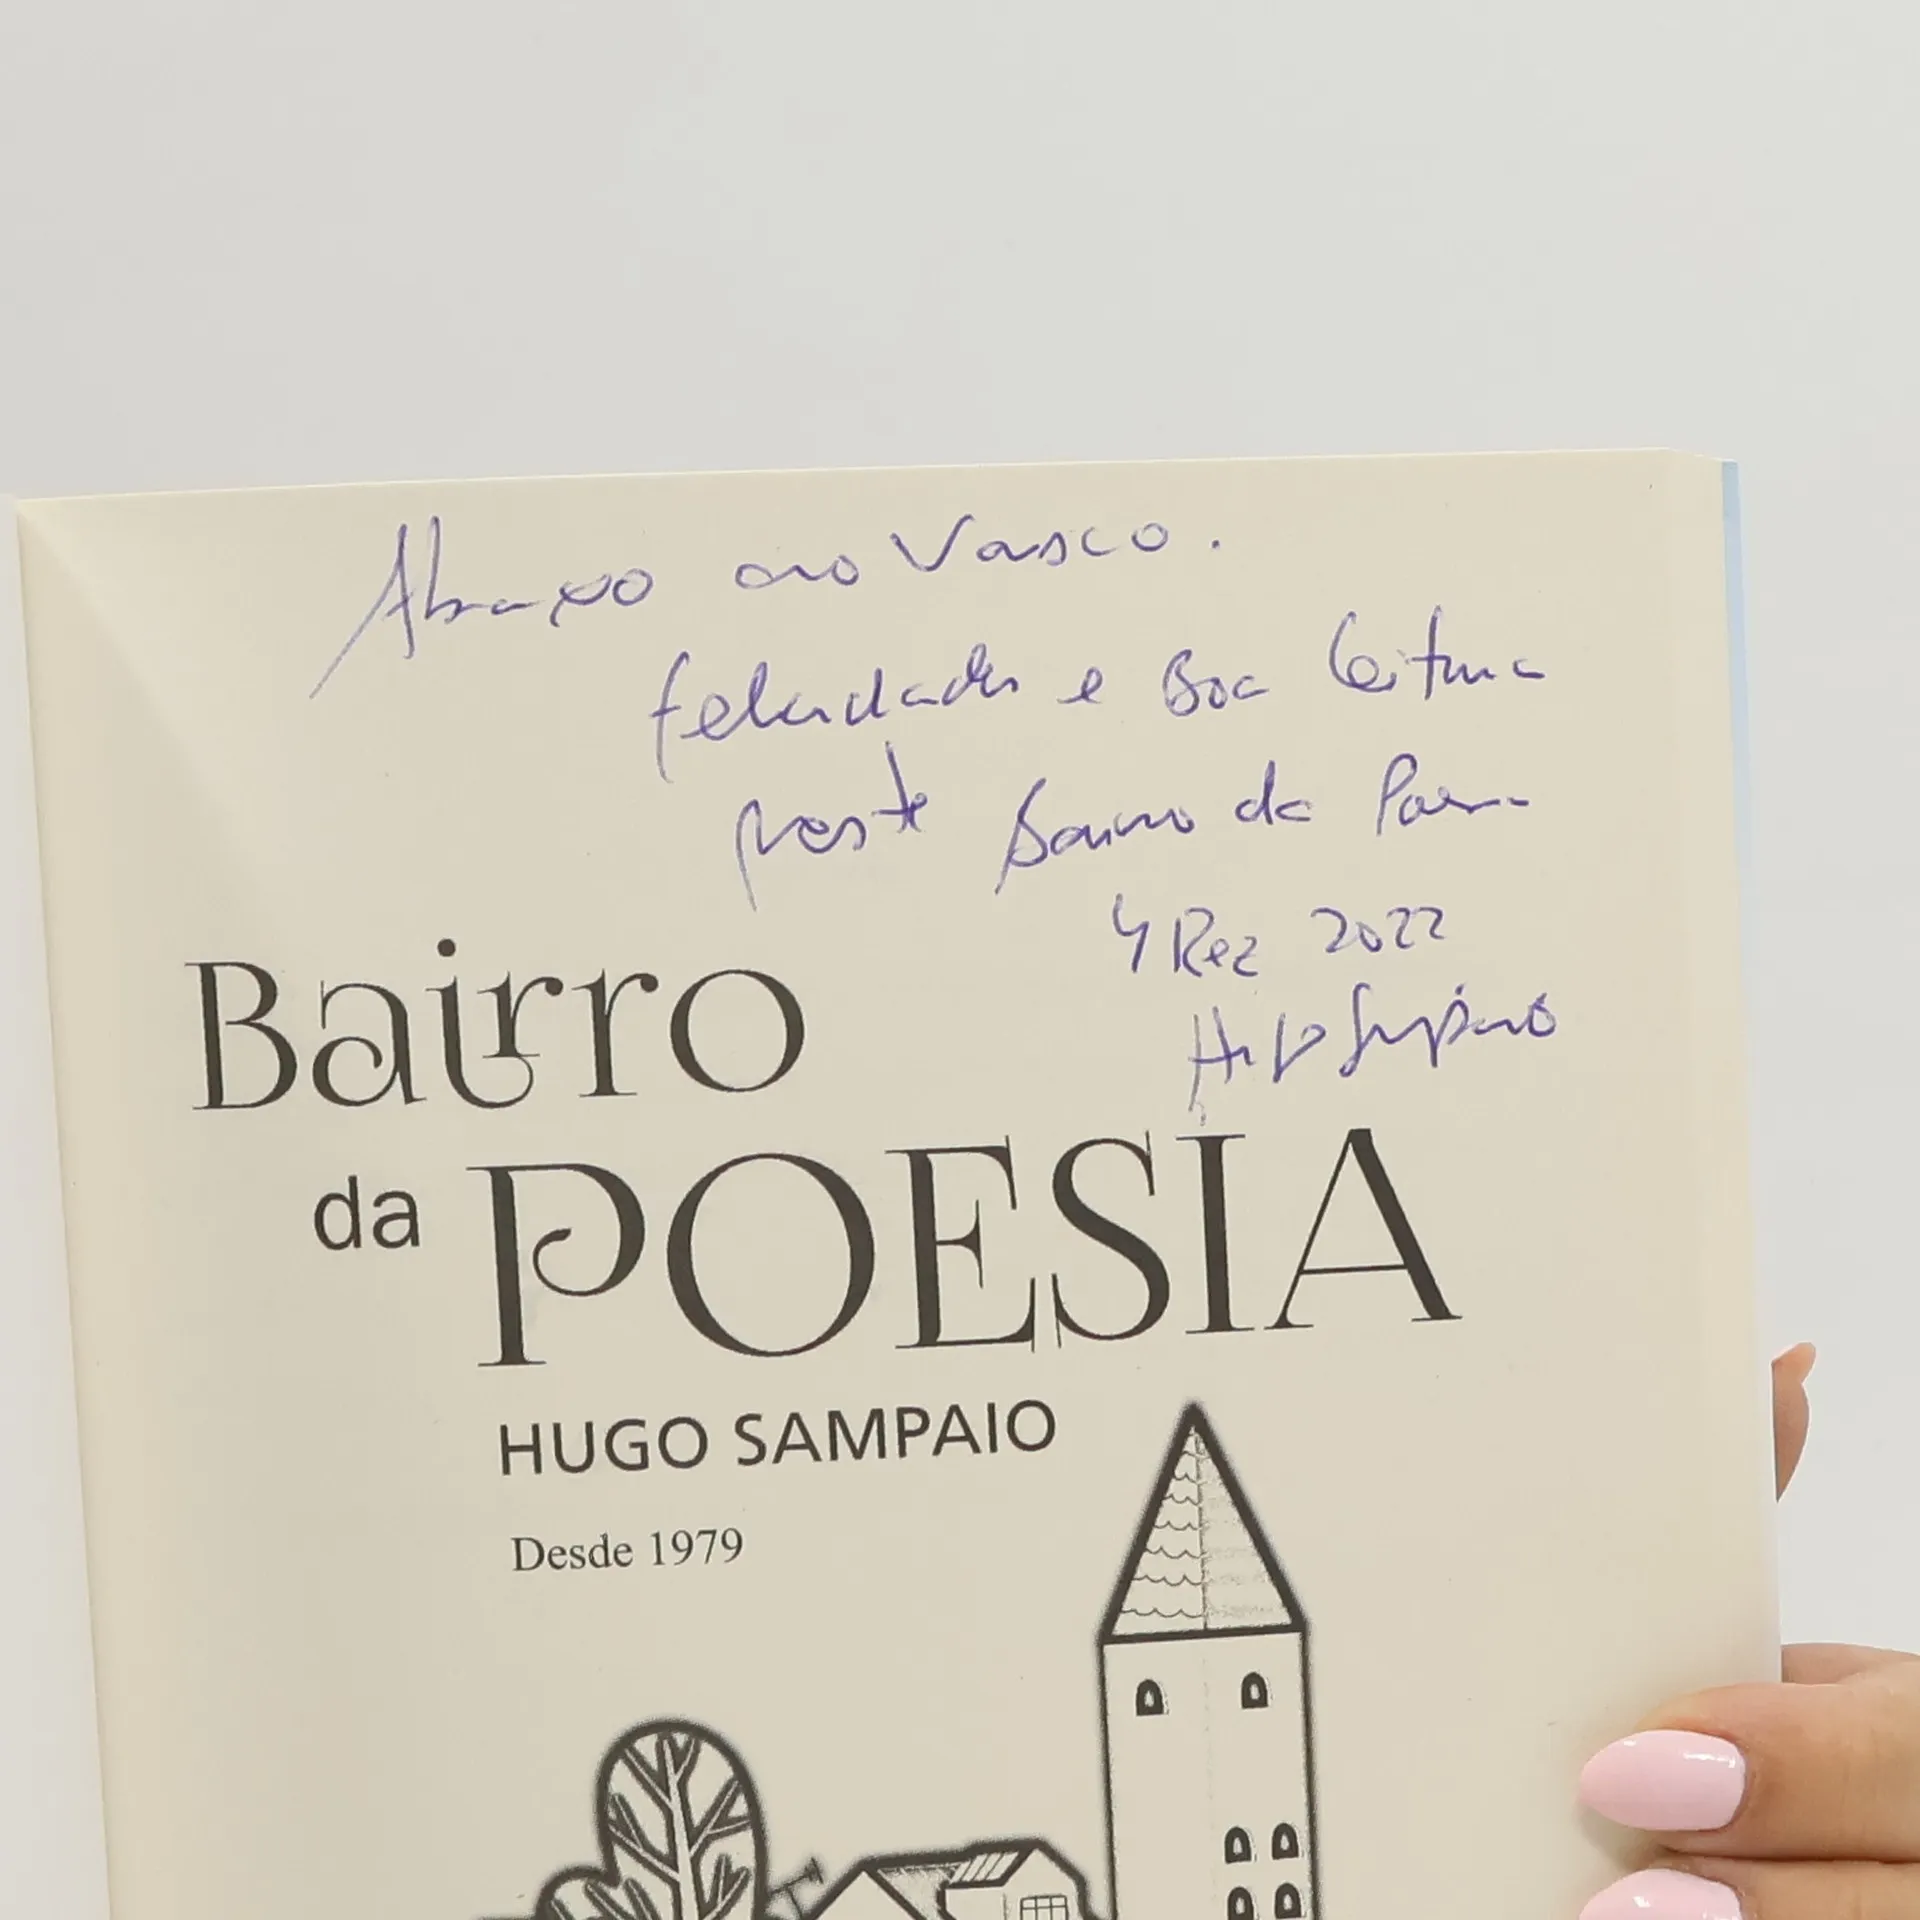 Abraço ao Vasco.
felicidades e Boa leitura
neste Bairro da Poesia
4 Dez 2022
Hugo Sampaio
Bairro
da POESIA
HUGO SAMPAIO
Desde 1979